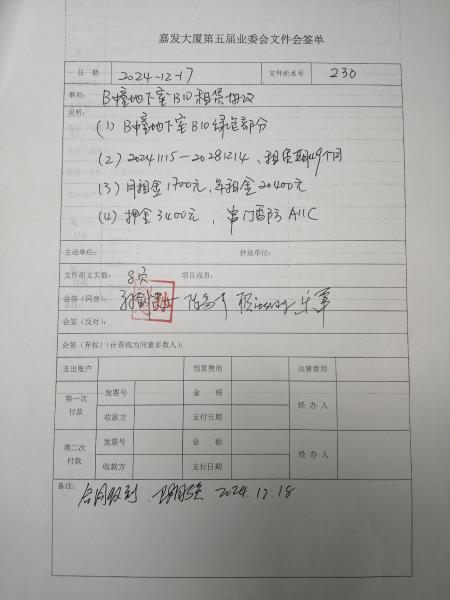 嘉发大厦第五届业委会文件会签单
日 期 2024-12-17 文件流水号 230
事项: B幢地下室B10租赁协议
说明:
(1) B幢地下室B10绿色部分
(2) 20241115-20281214、租赁期49个月
(3) 月租金1700元,年租金20400元
(4) 押金3400元,
主送单位: 抄送单位:
文件原文页数: 8页 项目成员:
会签(同意):
会签(反对):
会签(弃权)(计票视为同意多数人):
支出账户 预算费用 决算费用
第一次付款 发票号 金 额 经 办 人
收款方 支付日期
第二次付款 发票号 金 额 经 办 人
收款方 支付日期
备注: 合同收到. 2024.12.18